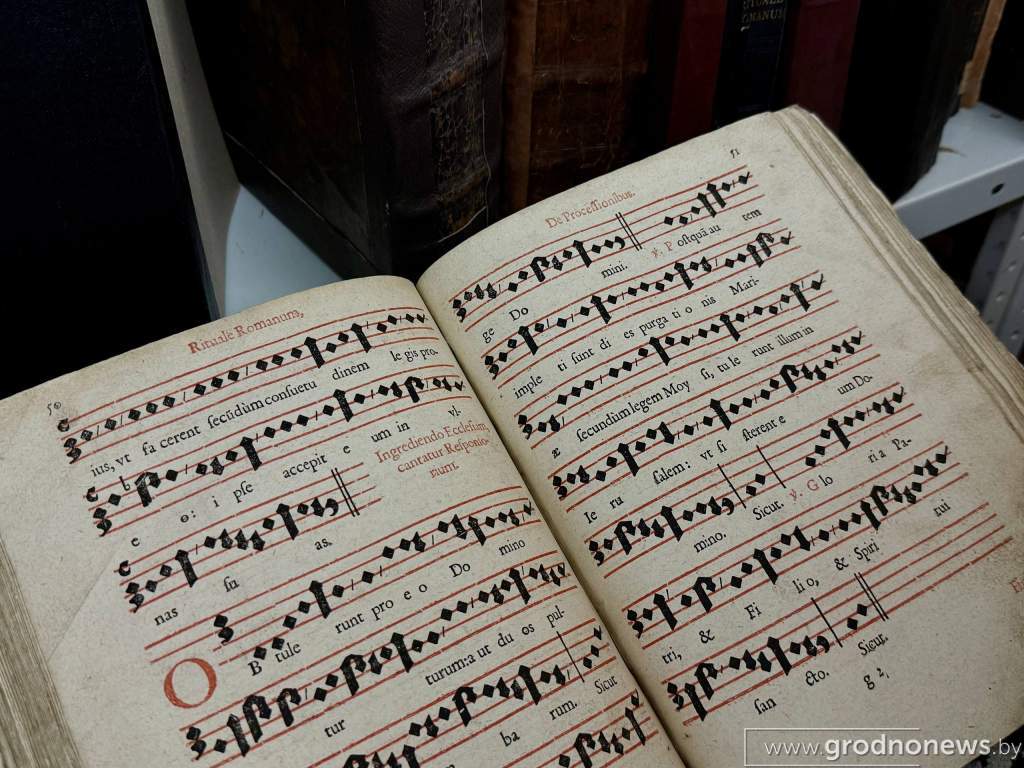 RITUALE
ROMANUM
50
Rituale Romanum,
ius, vt fa cerent secūdùm consuetu dinem le gis pro.
e o: i pse accepit e um in vl-
Ingrediendo Ecclesiam,
cantatur Responso-
rium.
nas su as,
O B tule runt pro e o Do mino
tur turum: a ut du os pul-
ba rum. Sicut
51
De Processionibus.
ge Do mini. ℣. P ostquā au tem
imple ti sunt di es purga ti o nis Mari-
æ secundùm legem Moy si, tu le runt illum in
Ie ru salem: vt si sterent e um Do-
mino. Sicut. ℣. G lo ri a Pa-
tri, & Fi li o, & Spiri tui
san cto. Sicut.
g 2,
www.grodnonews.by